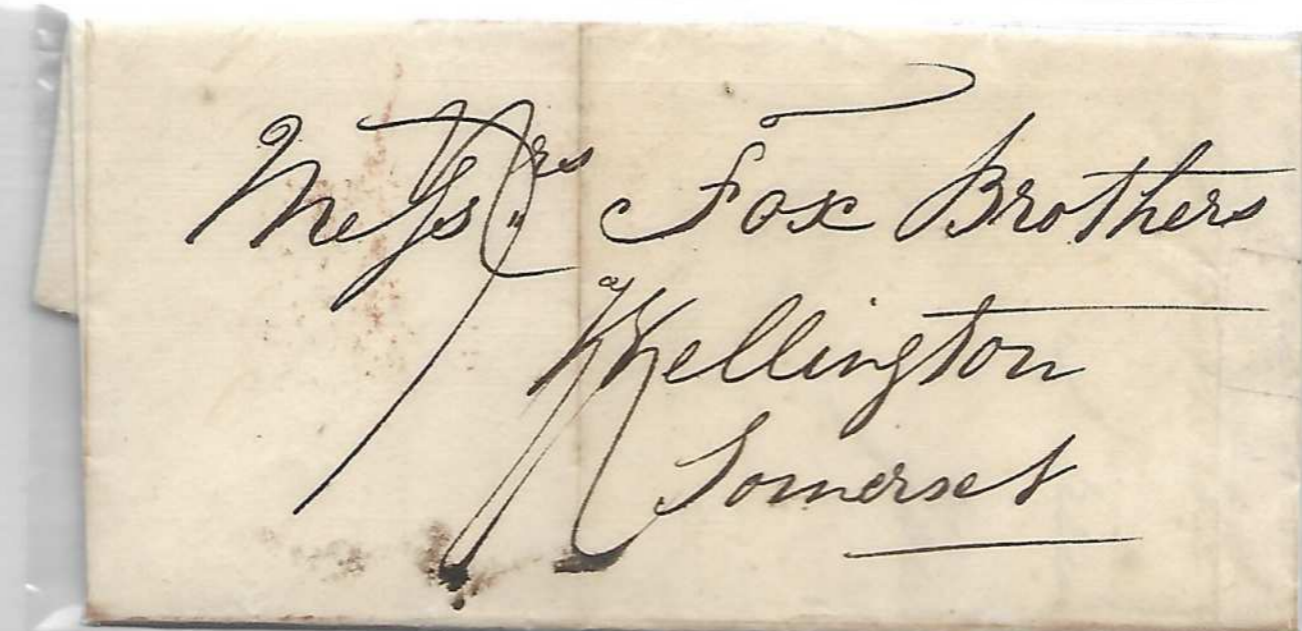 Messrs Fox Brothers
Wellington
Somerset